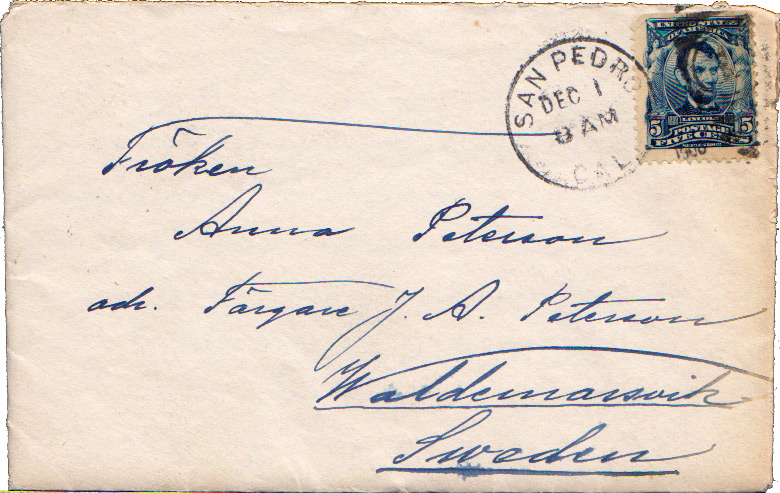 SAN PEDRO
DEC 1
8 AM
CAL.
UNITED STATES
OF AMERICA
LINCOLN
5 POSTAGE 5
FIVE CENTS
Fröken
Anna Peterson
adr. Färgare J. A. Peterson
Waldemarsvik
Sweden